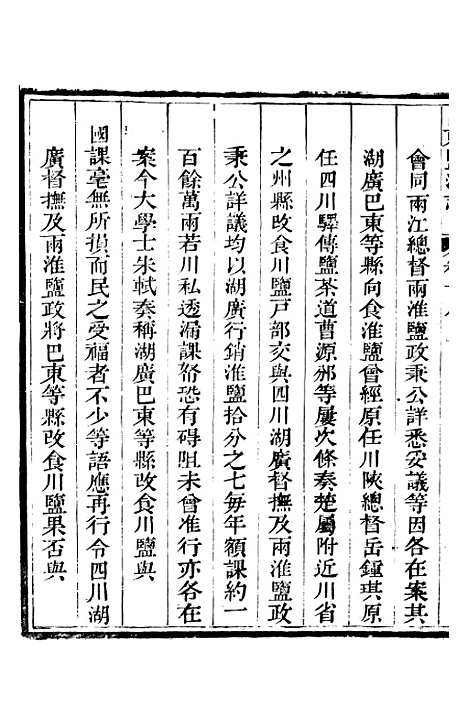 會同兩江總督兩淮鹽政秉公詳悉妥議等因各在案其
湖廣巴東等縣向食淮鹽曾經原任川陝總督岳鍾琪原
任四川驛傳鹽茶道曹源邠等屢次條奏楚屬附近川省
之州縣改食川鹽戸部交與四川湖廣督撫及兩淮鹽政
秉公詳議均以湖廣行銷淮鹽拾分之七每年額課約一
百餘萬兩若川私透漏課帑恐有碍阻未曾准行亦各在
案今大學士朱軾奏稱湖廣巴東等縣改食川鹽與
國課毫無所損而民之受福者不少等語應再行令四川湖
廣督撫及兩淮鹽政將巴東等縣改食川鹽果否與